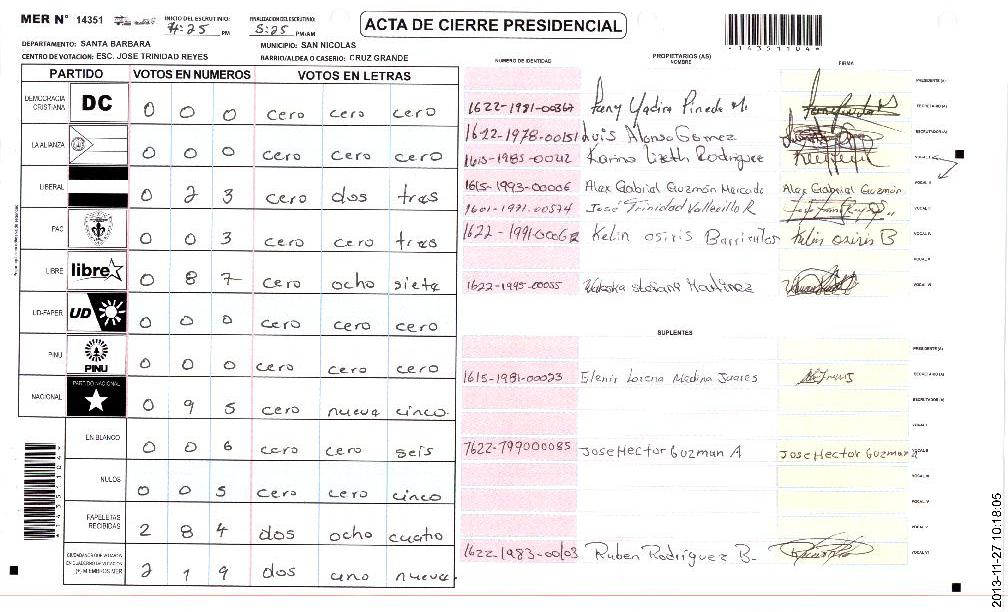 MER N° 14351 INICIO DEL ESCRUTINIO: 4:25 PM FINALIZACION DEL ESCRUTINIO: 5:25 PM/AM ACTA DE CIERRE PRESIDENCIAL
DEPARTAMENTO: SANTA BARBARA MUNICIPIO: SAN NICOLAS
CENTRO DE VOTACION: ESC. JOSE TRINIDAD REYES BARRIO/ALDEA O CASERIO: CRUZ GRANDE
PARTIDO VOTOS EN NUMEROS VOTOS EN LETRAS
DEMOCRACIA CRISTIANA DC 0 0 0 cero cero cero
LA ALIANZA 0 0 0 cero cero cero
LIBERAL 0 2 3 cero dos tres
PAC 0 0 3 cero cero tres
LIBRE libre 0 8 7 cero ocho siete
UD-FAPER UD 0 0 0 cero cero cero
PINU PINU 0 0 0 cero cero cero
NACIONAL PARTIDO NACIONAL 0 9 5 cero nueve cinco
EN BLANCO 0 0 6 cero cero seis
NULOS 0 0 5 cero cero cinco
PAPELETAS RECIBIDAS 2 8 4 dos ocho cuatro
CIUDADANOS QUE VOTARON EN CUADERNO DE VOTACION (+) MIEMBROS MER 2 1 9 dos uno nueve
NUMERO DE IDENTIDAD PROPIETARIOS (AS) NOMBRE FIRMA
PRESIDENTE (A)
1622-1981-00367 Fany Yadira Pineda M. SECRETARIO (A)
1622-1978-00151 Luis Alonso Gomez ESCRUTADOR (A)
1615-1985-00212 Karina Lizeth Rodriguez VOCAL I
1615-1993-00006 Alex Gabriel Guzmán Mercado Alex Gabriel Guzmán VOCAL II
1601-1971-00574 José Trinidad Vallecillo R VOCAL III
1622-1991-0006 Kelin osiris Barrientos Kelin osiris B VOCAL IV
VOCAL V
1622-1995-00055 Martinez VOCAL VI
SUPLENTES
PRESIDENTE (A)
1615-1981-00023 Elenir Lorena Medina Juares SECRETARIO (A)
ESCRUTADOR (A)
VOCAL I
1622-799000085 Jose Hector Guzman A Jose Hector Guzman A VOCAL II
VOCAL III
VOCAL IV
VOCAL V
1622-1983-00103 Ruben Rodriguez B. VOCAL VI
14351104
2013-11-27 10:18:05